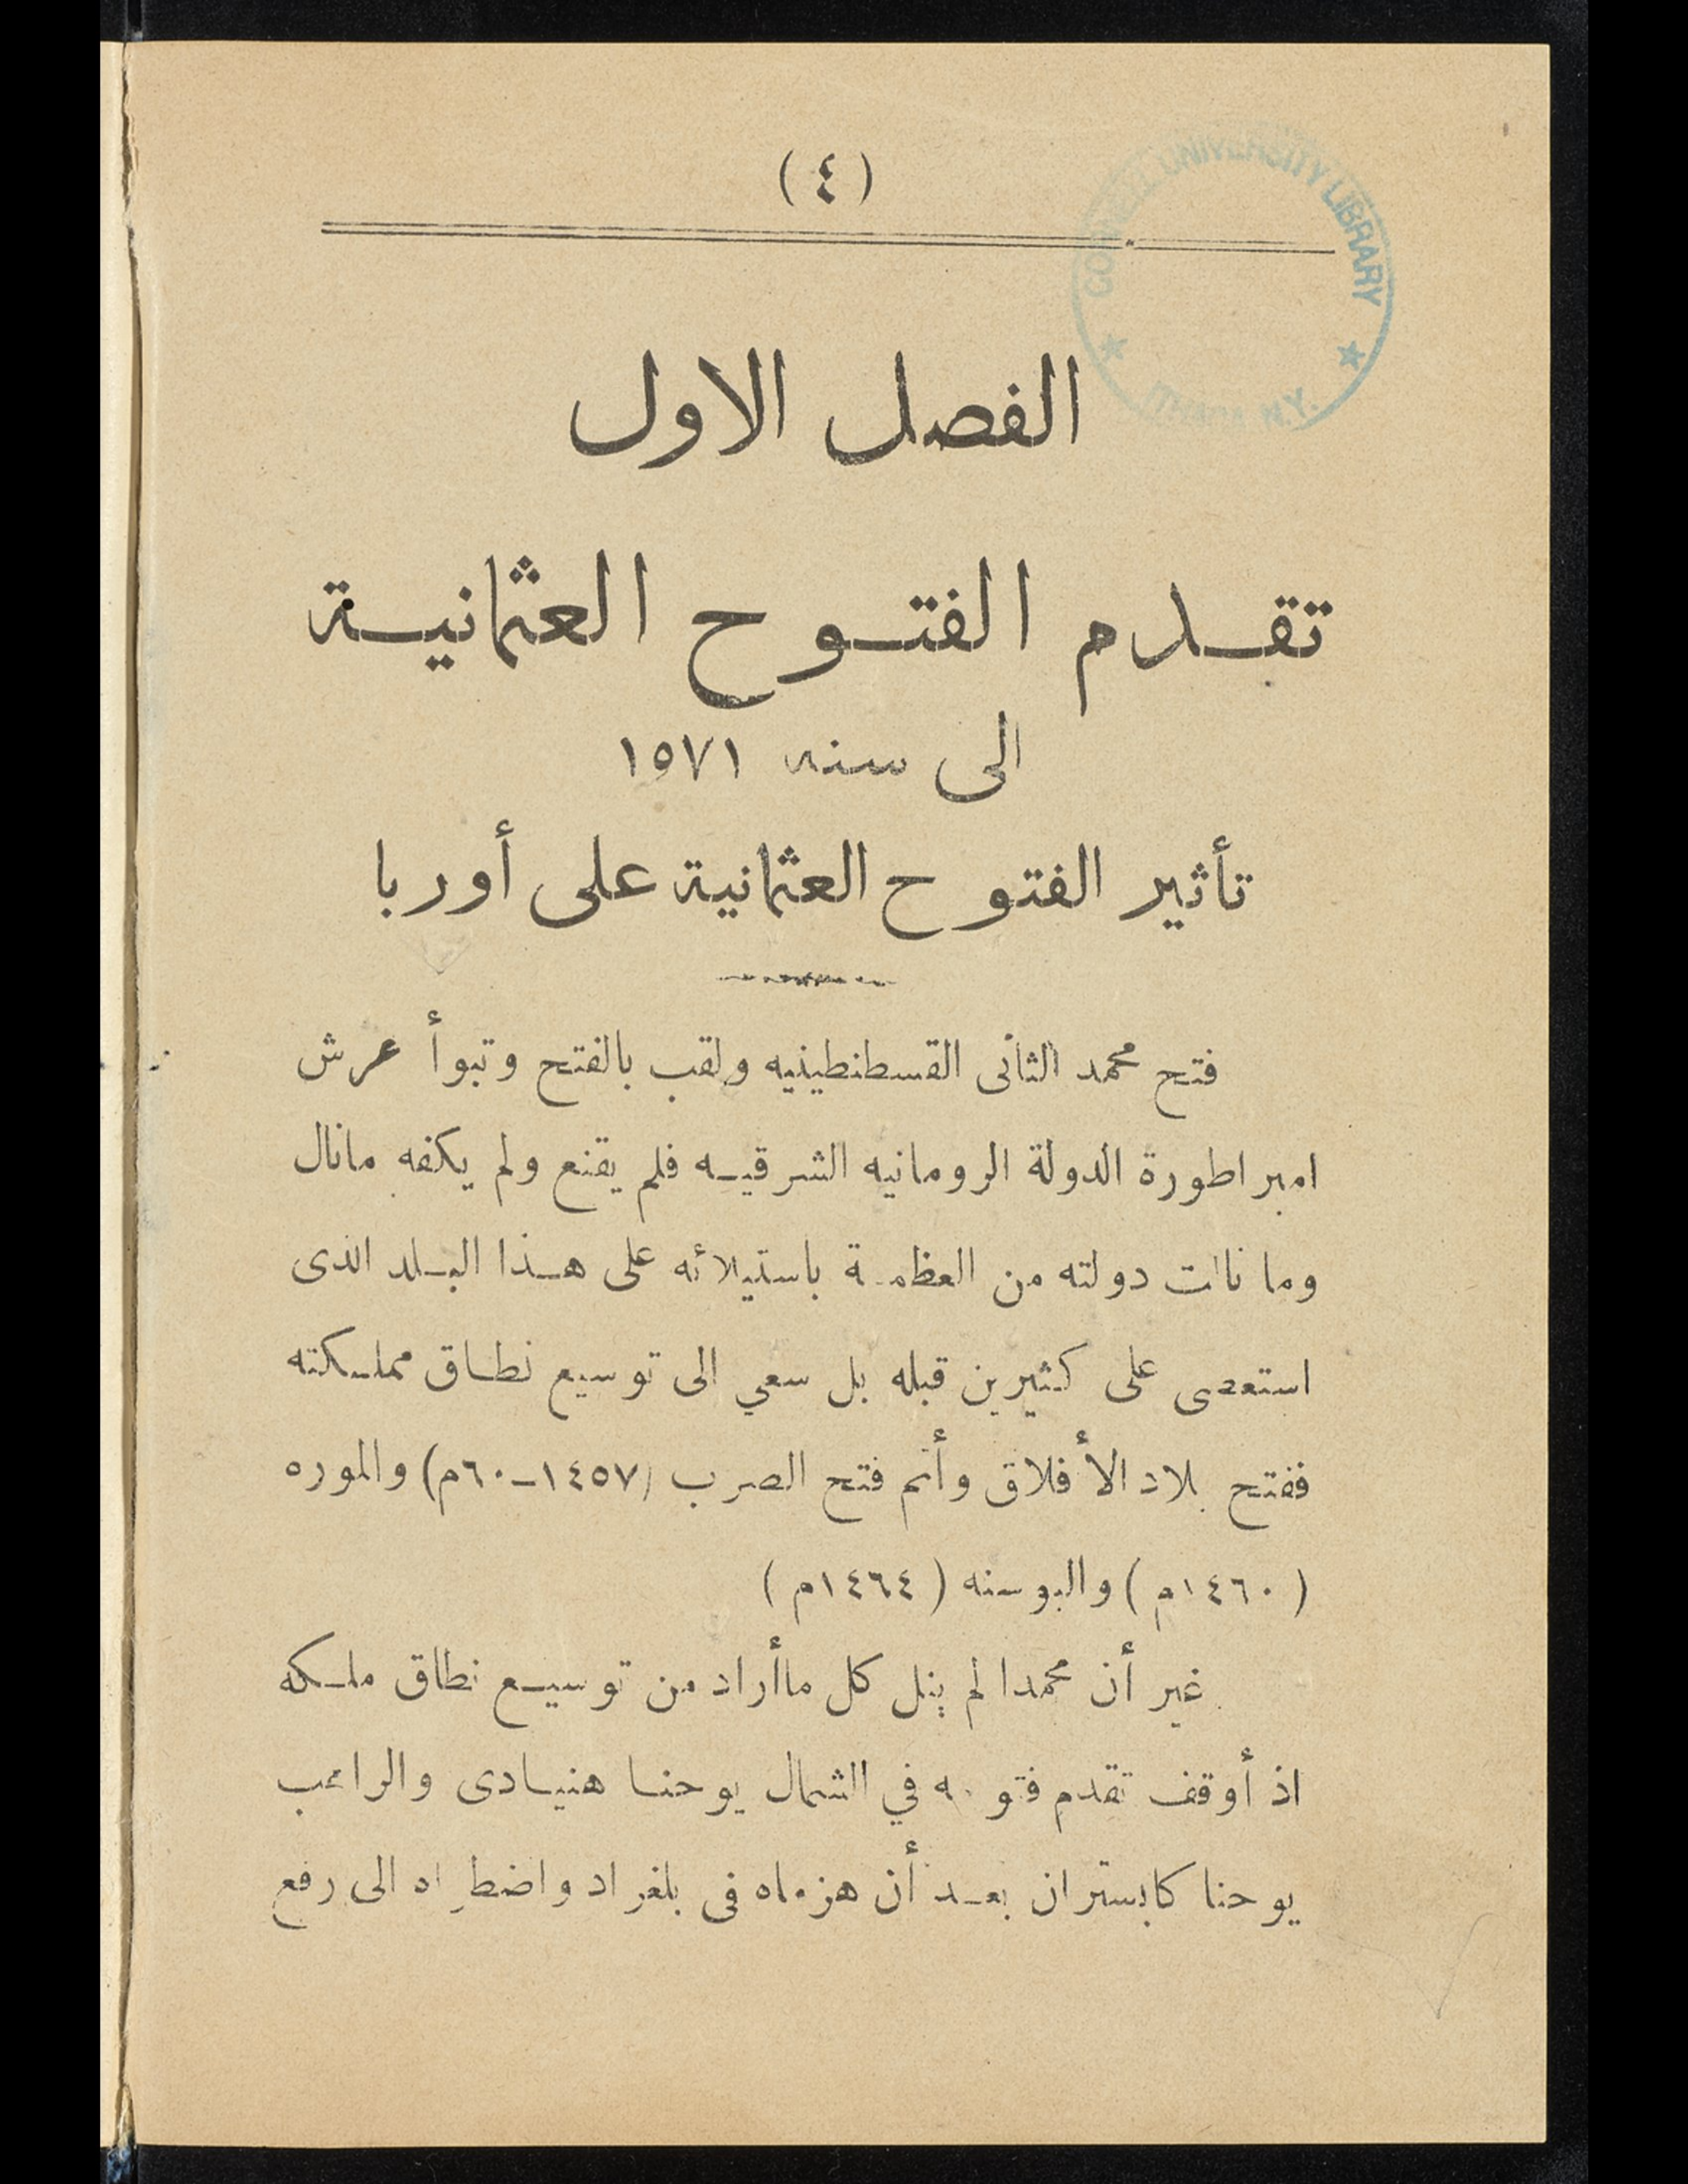 (٤)
CORNELL UNIVERSITY LIBRARY
ITHACA N.Y.
الفصل الاول
تقدم الفتوح العثمانية
الى سنه ١٥٧١
تأثير الفتوح العثمانية على أوربا
فتح محمد الثانى القسطنطينيه ولقب بالفتح وتبوأ عرش
امبراطورة الدولة الرومانيه الشرقيه فلم يقنع ولم يكفه مانال
وما نالت دولته من العظمة باستيلائه على هذا البلد الذى
استعصى على كثيرين قبله بل سعي الى توسيع نطاق مملكته
ففتح بلاد الأفلاق وأتم فتح الصرب (١٤٥٧-٦٠م) والموره
(١٤٦٠م) والبوسنه (١٤٦٤م)
غير أن محمدا لم ينل كل ماأراد من توسيع نطاق ملكه
اذ أوقف تقدم فتوحه في الشمال يوحنا هنيادى والراهب
يوحنا كابستران بعد أن هزماه فى بلغراد واضطراه الى رفع